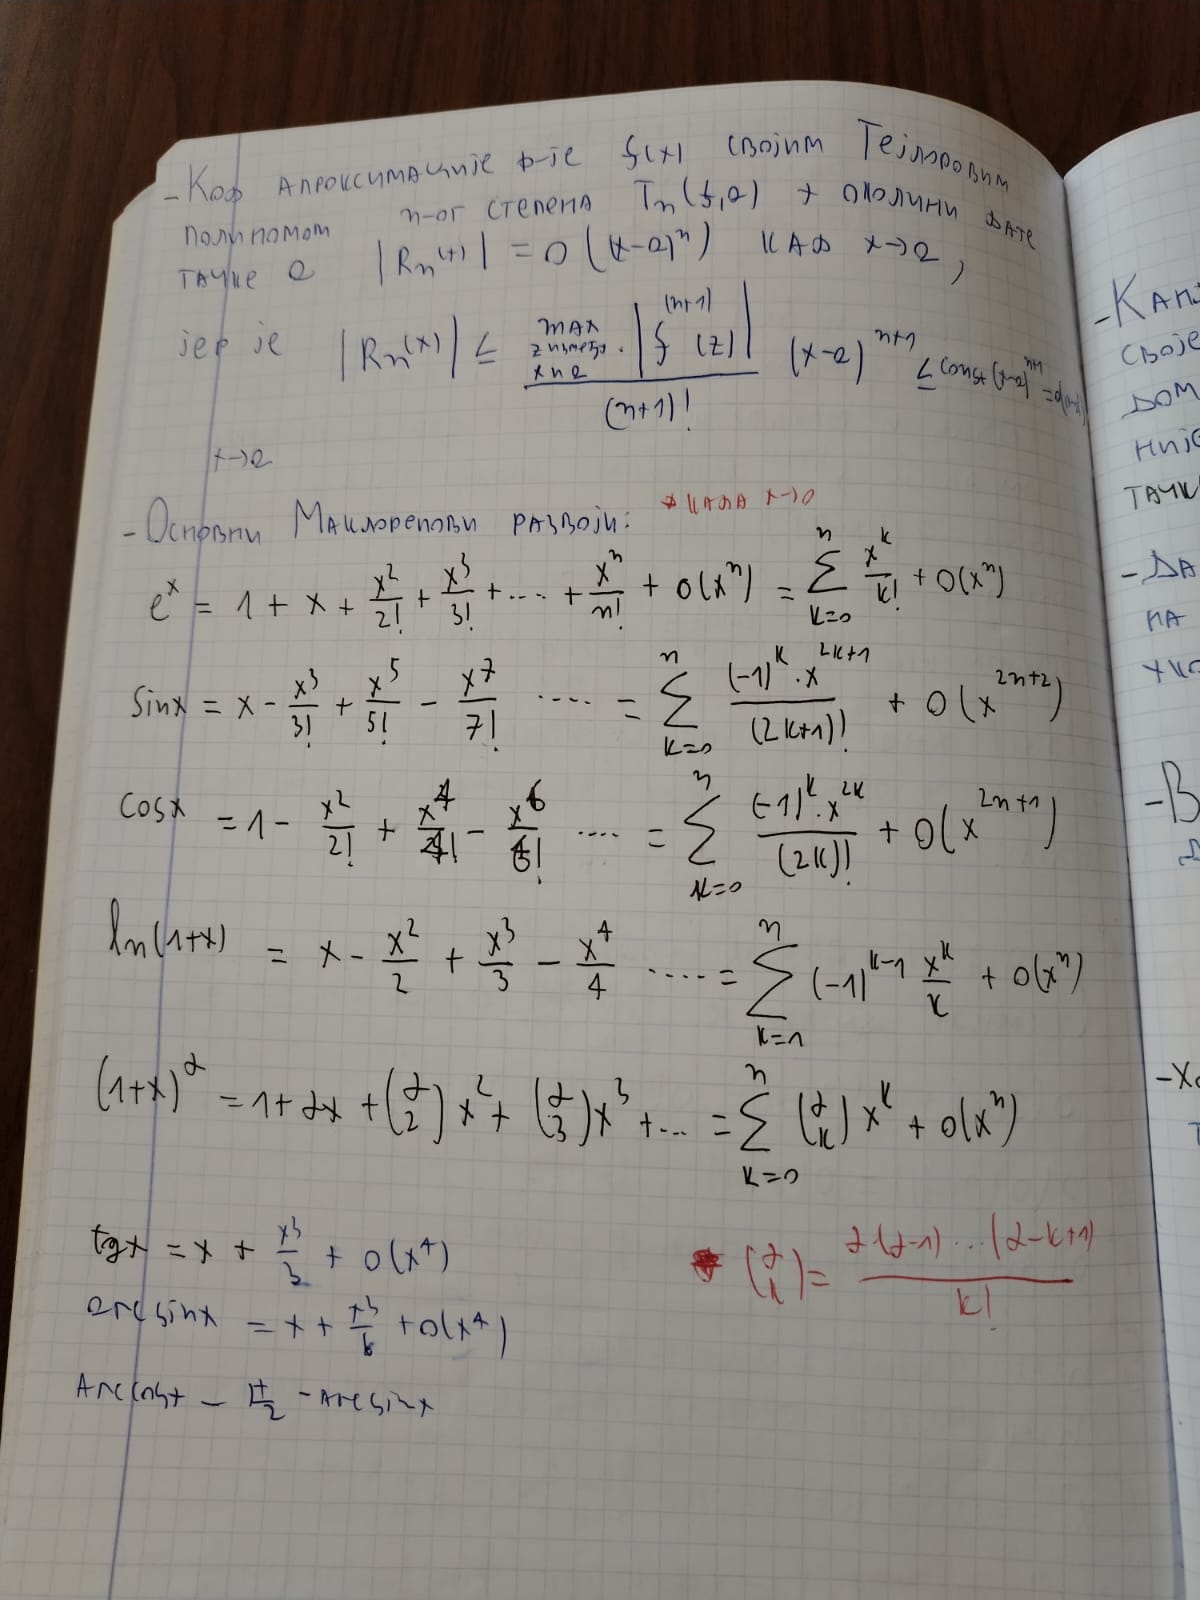 - Код апроксимације ф-је f(x) својим Тејлоровим
полиномом n-ог степена Tn(f,a) у околини дате
тачке a |Rn(x)| = o((x-a)^n) кад x→a,
јер је |Rn(x)| ≤ max z између x и a |f^(n+1)(z)| / (n+1)! (x-a)^(n+1) ≤ const (x-a)^(n+1) =
x→a
- Основни Маклоренови развоји: * када x→0
e^x = 1 + x + x^2/2! + x^3/3! + .... + x^n/n! + o(x^n) = Σ_{k=0}^{n} x^k/k! + o(x^n)
sinx = x - x^3/3! + x^5/5! - x^7/7! .... = Σ_{k=0}^{n} (-1)^k · x^(2k+1) / (2k+1)! + o(x^(2n+2))
cosx = 1 - x^2/2! + x^4/4! - x^6/6! .... = Σ_{k=0}^{n} (-1)^k · x^(2k) / (2k)! + o(x^(2n+1))
ln(1+x) = x - x^2/2 + x^3/3 - x^4/4 ..... = Σ_{k=1}^{n} (-1)^(k-1) x^k/k + o(x^n)
(1+x)^α = 1 + αx + (α 2) x^2 + (α 3) x^3 + ... = Σ_{k=0}^{n} (α k) x^k + o(x^n)
tgx = x + x^3/3 + o(x^4)
* (α k) = α·(α-1)...(α-k+1) / k!
arcsinx = x + x^3/6 + o(x^4)
arccosx = π/2 - arcsinx
- Кап
своје
дом
није
тачк
- Да
на
уко
- В
- Хо